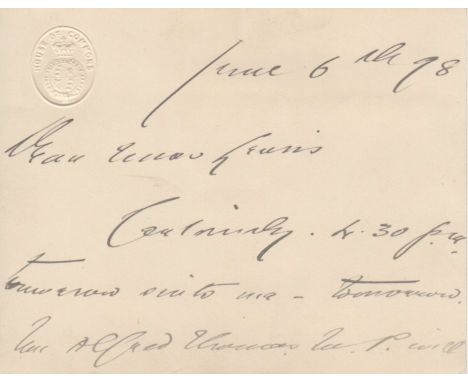 HOUSE OF COMMONS
June 6th 98
Dear Lewis
Certainly. 4.30 p.m.
tomorrow suits me - tomorrow.
Alfred Thomas M.P. will